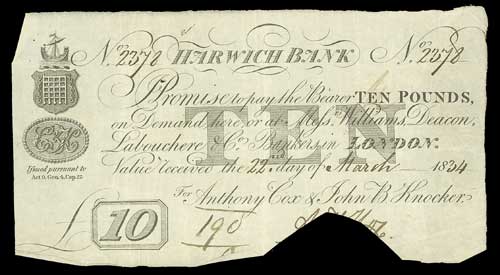 No. 2378 HARWICH BANK No. 2378
I Promise to pay the Bearer TEN POUNDS,
on Demand here or at Messrs. Williams, Deacon,
Labouchere & Co. Bankers in LONDON.
TEN
Value received the 22nd day of March 1834
Issued pursuant to
Act 9. Geo. 4. Cap. 23
For Anthony Cox & John B Knocker
£ 10
190